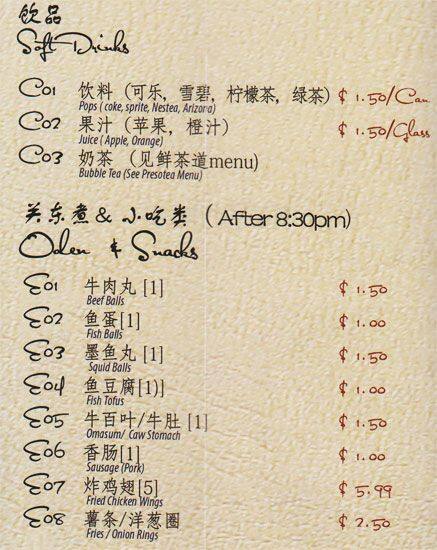 饮品
Soft Drinks
C01 饮料（可乐，雪碧，柠檬茶，绿茶） $ 1.50/Can
Pops ( coke, sprite, Nestea, Arizona)
C02 果汁（苹果，橙汁） $ 1.50/Glass
Juice ( Apple, Orange)
C03 奶茶 （见鲜茶道menu)
Bubble Tea (See Presotea Menu)
关东煮 & 小吃类 ( After 8:30pm)
Oden & Snacks
E01 牛肉丸 [1] $ 1.50
Beef Balls
E02 鱼蛋[1] $ 1.00
Fish Balls
E03 墨鱼丸 [1] $ 1.50
Squid Balls
E04 鱼豆腐[1)] $ 1.00
Fish Tofus
E05 牛百叶/牛肚 [1] $ 1.50
Omasum/ Caw Stomach
E06 香肠[1] $ 1.00
Sausage (Pork)
E07 炸鸡翅[5] $ 5.99
Fried Chicken Wings
E08 薯条/洋葱圈 $ 2.50
Fries / Onion Rings